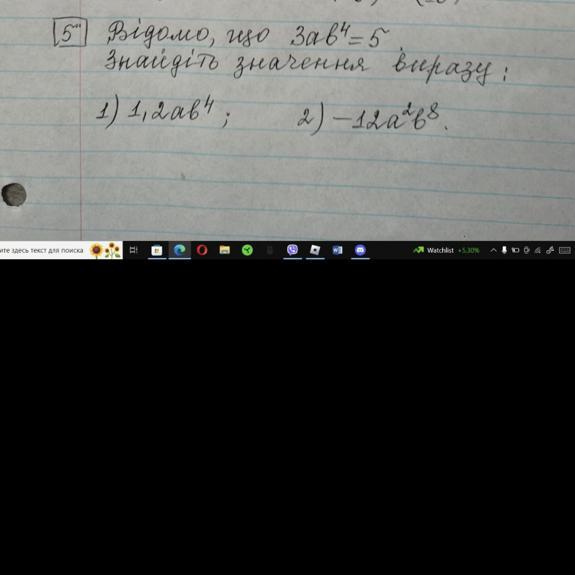 5
Відомо, що 3ab⁴=5.
Знайдіть значення виразу:
1) 1,2ab⁴; 2) −12a²b⁸.
те здесь текст для поиска
Watchlist +5.30%